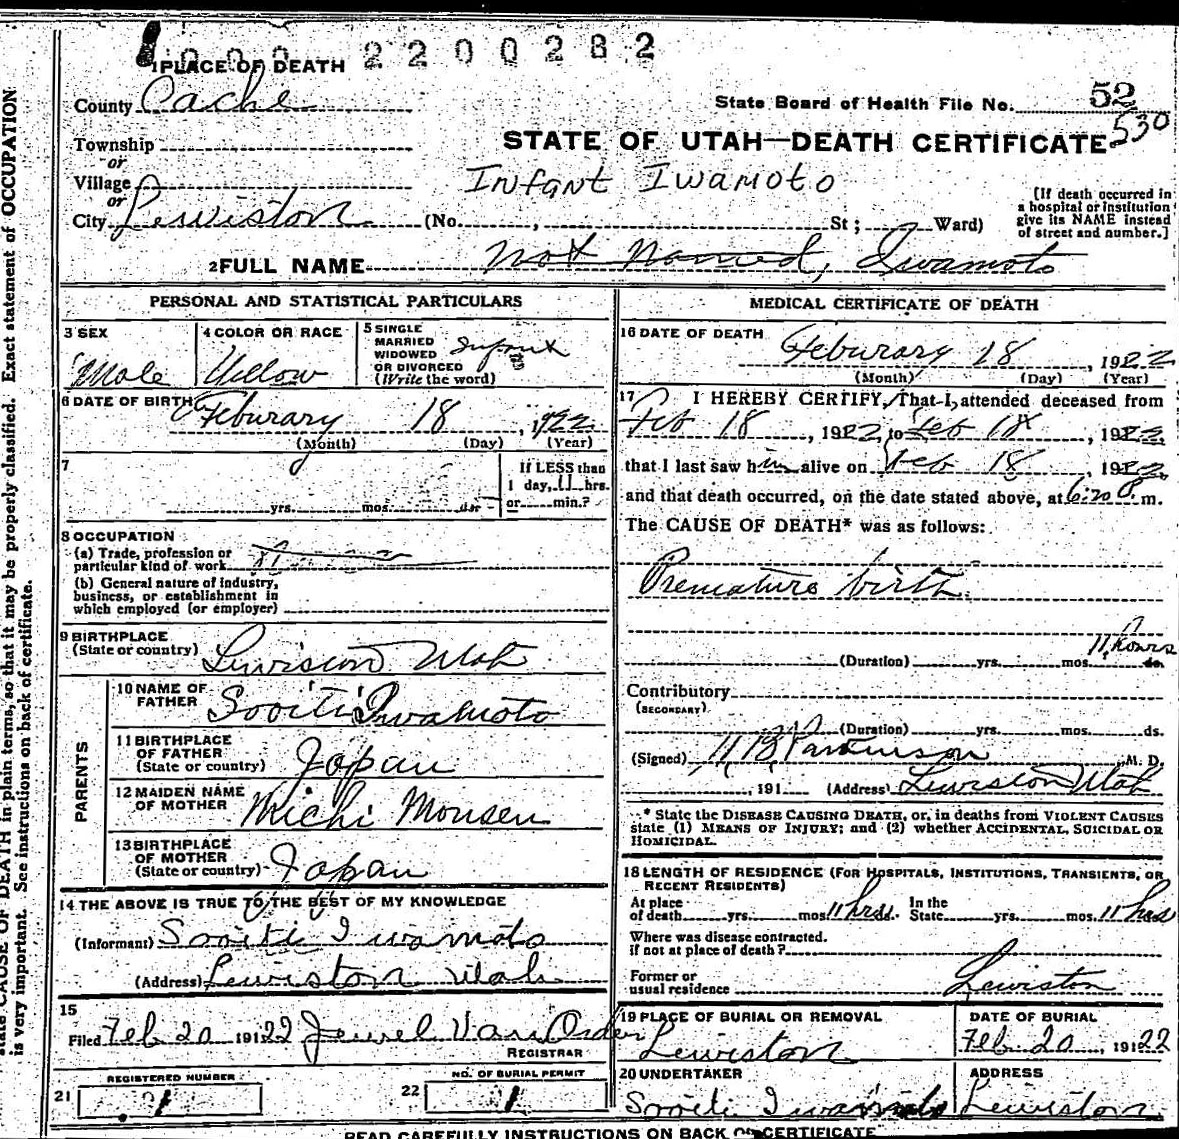 1 PLACE OF DEATH 2200282
County Cache
State Board of Health File No. 52
530
STATE OF UTAH—DEATH CERTIFICATE
Township
or
Village
or
Infant Iwamoto
City Lewiston (No. , St ; Ward)
[If death occurred in a hospital or institution give its NAME instead of street and number.]
2 FULL NAME Not Named, Iwamoto
PERSONAL AND STATISTICAL PARTICULARS
3 SEX
Male
4 COLOR OR RACE
Yellow
5 SINGLE
MARRIED
WIDOWED
OR DIVORCED
(Write the word)
Infant
6 DATE OF BIRTH
Feburary 18, 1922
(Month) (Day) (Year)
7
yrs. mos. ds.
If LESS than
1 day, 11 hrs.
or min.?
8 OCCUPATION
(a) Trade, profession or
particular kind of work
(b) General nature of industry,
business, or establishment in
which employed (or employer)
9 BIRTHPLACE
(State or country) Lewiston Utah
PARENTS
10 NAME OF
FATHER Sooiti Iwamoto
11 BIRTHPLACE
OF FATHER
(State or country) Japan
12 MAIDEN NAME
OF MOTHER Michi Monsen
13 BIRTHPLACE
OF MOTHER
(State or country) Japan
14 THE ABOVE IS TRUE TO THE BEST OF MY KNOWLEDGE
(Informant) Sooiti Iwamoto
(Address) Lewiston Utah
15
Filed Feb 20 1922 Jewel Van Orden
REGISTRAR
REGISTERED NUMBER
21 1
NO. OF BURIAL PERMIT
22 1
MEDICAL CERTIFICATE OF DEATH
16 DATE OF DEATH
Feburary 18, 1922
(Month) (Day) (Year)
17 I HEREBY CERTIFY, That I attended deceased from
Feb 18, 1922 to Feb 18, 1922
that I last saw him alive on Feb 18, 1922
and that death occurred, on the date stated above, at 6:20 P m.
The CAUSE OF DEATH* was as follows:
Premature birth.
11 hours
(Duration) yrs. mos. ds.
Contributory
(SECONDARY)
(Duration) yrs. mos. ds.
(Signed) Parkinson M. D.
, 191 (Address) Lewiston Utah
* State the DISEASE CAUSING DEATH, or, in deaths from VIOLENT CAUSES
state (1) MEANS OF INJURY; and (2) whether ACCIDENTAL, SUICIDAL OR
HOMICIDAL.
18 LENGTH OF RESIDENCE (FOR HOSPITALS, INSTITUTIONS, TRANSIENTS, OR
RECENT RESIDENTS)
At place In the
of death yrs. mos. 11 hrs. State yrs. mos. 11 hrs
Where was disease contracted.
if not at place of death?
Former or
usual residence Lewiston
19 PLACE OF BURIAL OR REMOVAL
Lewiston
DATE OF BURIAL
Feb 20, 1922
20 UNDERTAKER
Sooiti Iwamoto
ADDRESS
Lewiston
READ CAREFULLY INSTRUCTIONS ON BACK OF CERTIFICATE
state CAUSE OF DEATH in plain terms, so that it may be properly classified. Exact statement of OCCUPATION
is very important. See instructions on back of certificate.